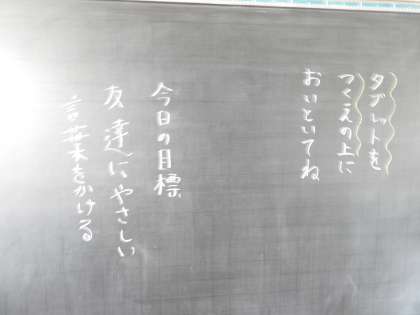 タブレットを
つくえの上に
おいといてね
今日の目標
友達にやさしい
言葉をかける